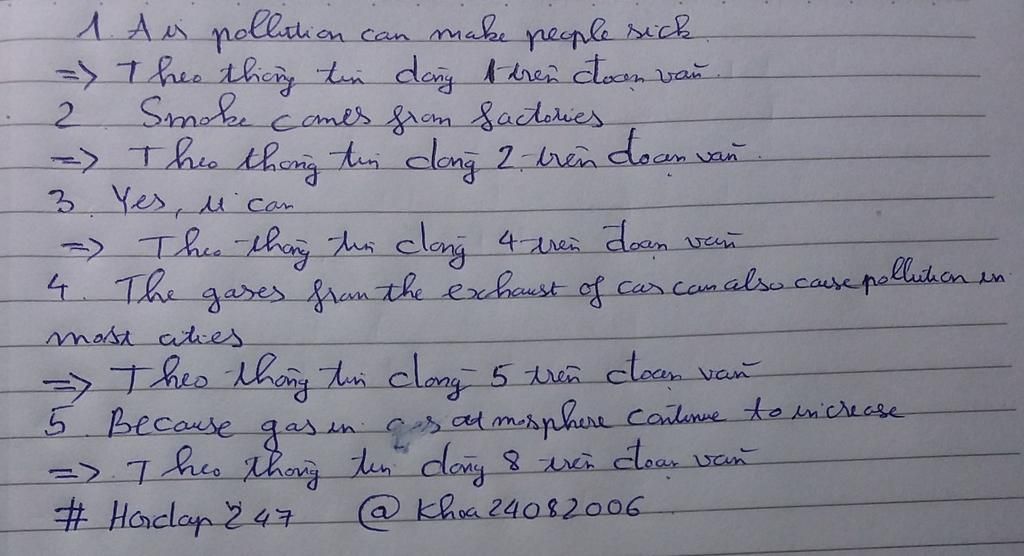 1. Air pollution can make people sick
=> Theo thông tin dòng 1 trên đoạn văn.
2 Smoke comes from factories
=> Theo thông tin dòng 2 trên đoạn văn.
3. Yes, it can
=> Theo thông tin dòng 4 trên đoạn văn
4. The gases from the exhaust of cars can also cause pollution in
most cities
=> Theo thông tin dòng 5 trên đoạn văn
5. Because gas in atmosphere continue to increase
=> Theo thông tin dòng 8 trên đoạn văn
# Hoidap 247 @Khoa24082006